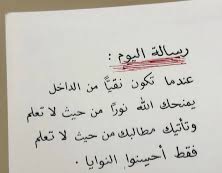 رسالة اليوم :
عندما تكون نقيًّا من الداخل
يمنحك الله نورًا من حيث لا تعلم
وتأتيك مطالبك من حيث لا تعلم
فقط أحسِنوا النوايا .